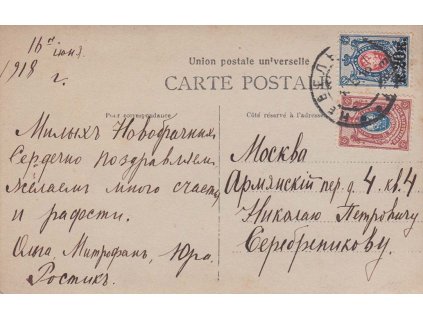 16го іюня
1918 г.
Union postale universelle
CARTE POSTALE
Pour correspondance
Côté réservé à l'adresse
Милыхъ Новобрачныхъ
Сердечно поздравляемъ
Желаемъ много счастья
и радости.
Ольга, Митрофанъ, Юра
Ростикъ.
Москва
Армянскій пер. д. 4 кв. 4
Николаю Петровичу
Серебренникову.